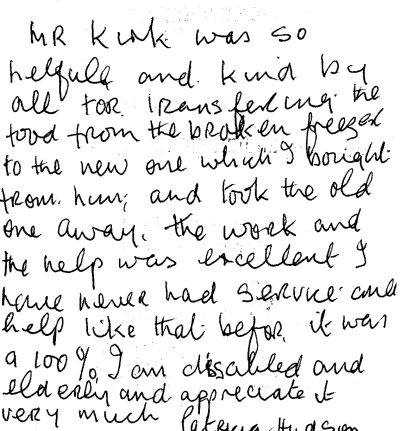 MR Kirk was so
helpfull and kind by
all for transferring the
food from the broken freezer
to the new one which I bought
from him, and took the old
one away. the work and
the help was excellent I
have never had service and
help like that befor, it was
a 100%, I am disabled and
elderly and appreciate it
very much Patricia Hudson